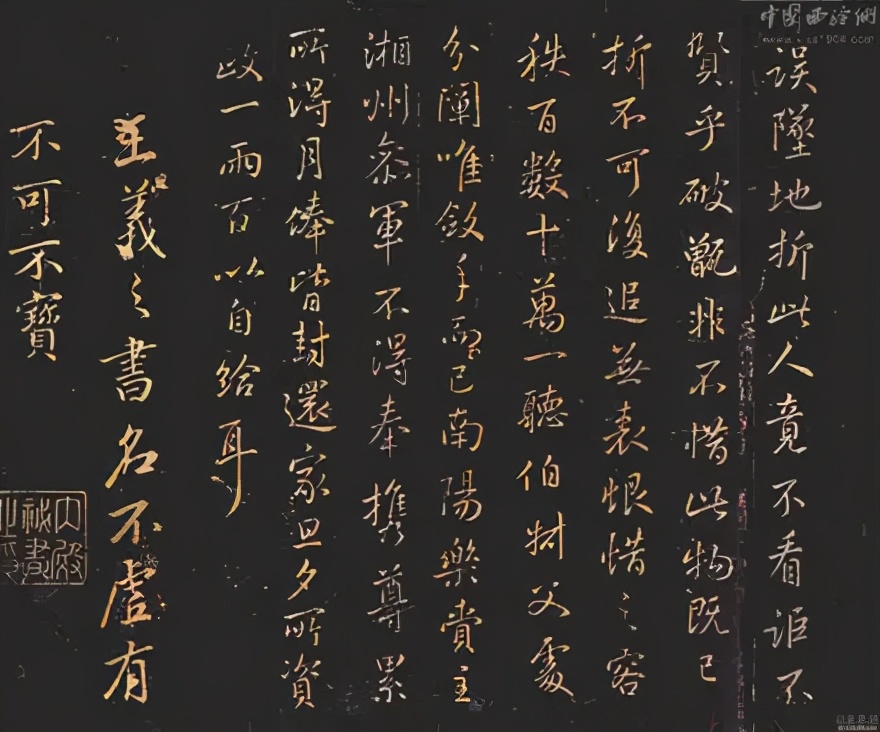 誤墜地折此人竟不看詎不
賢乎破甑非不惜此物既已
折不可復追無表恨惜之容
秩百數十萬一聽伯父處
分闡唯斂手而已南陽樂賞主
湘州參軍不得奉攜尊累
所得月俸皆封還家旦夕所資
政一兩百以自給耳
王羲之書名不虛有
不可不寶
內殿
秘書